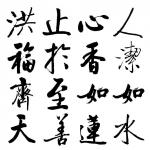 人潔如水
心香如蓮
止於至善
洪福齊天